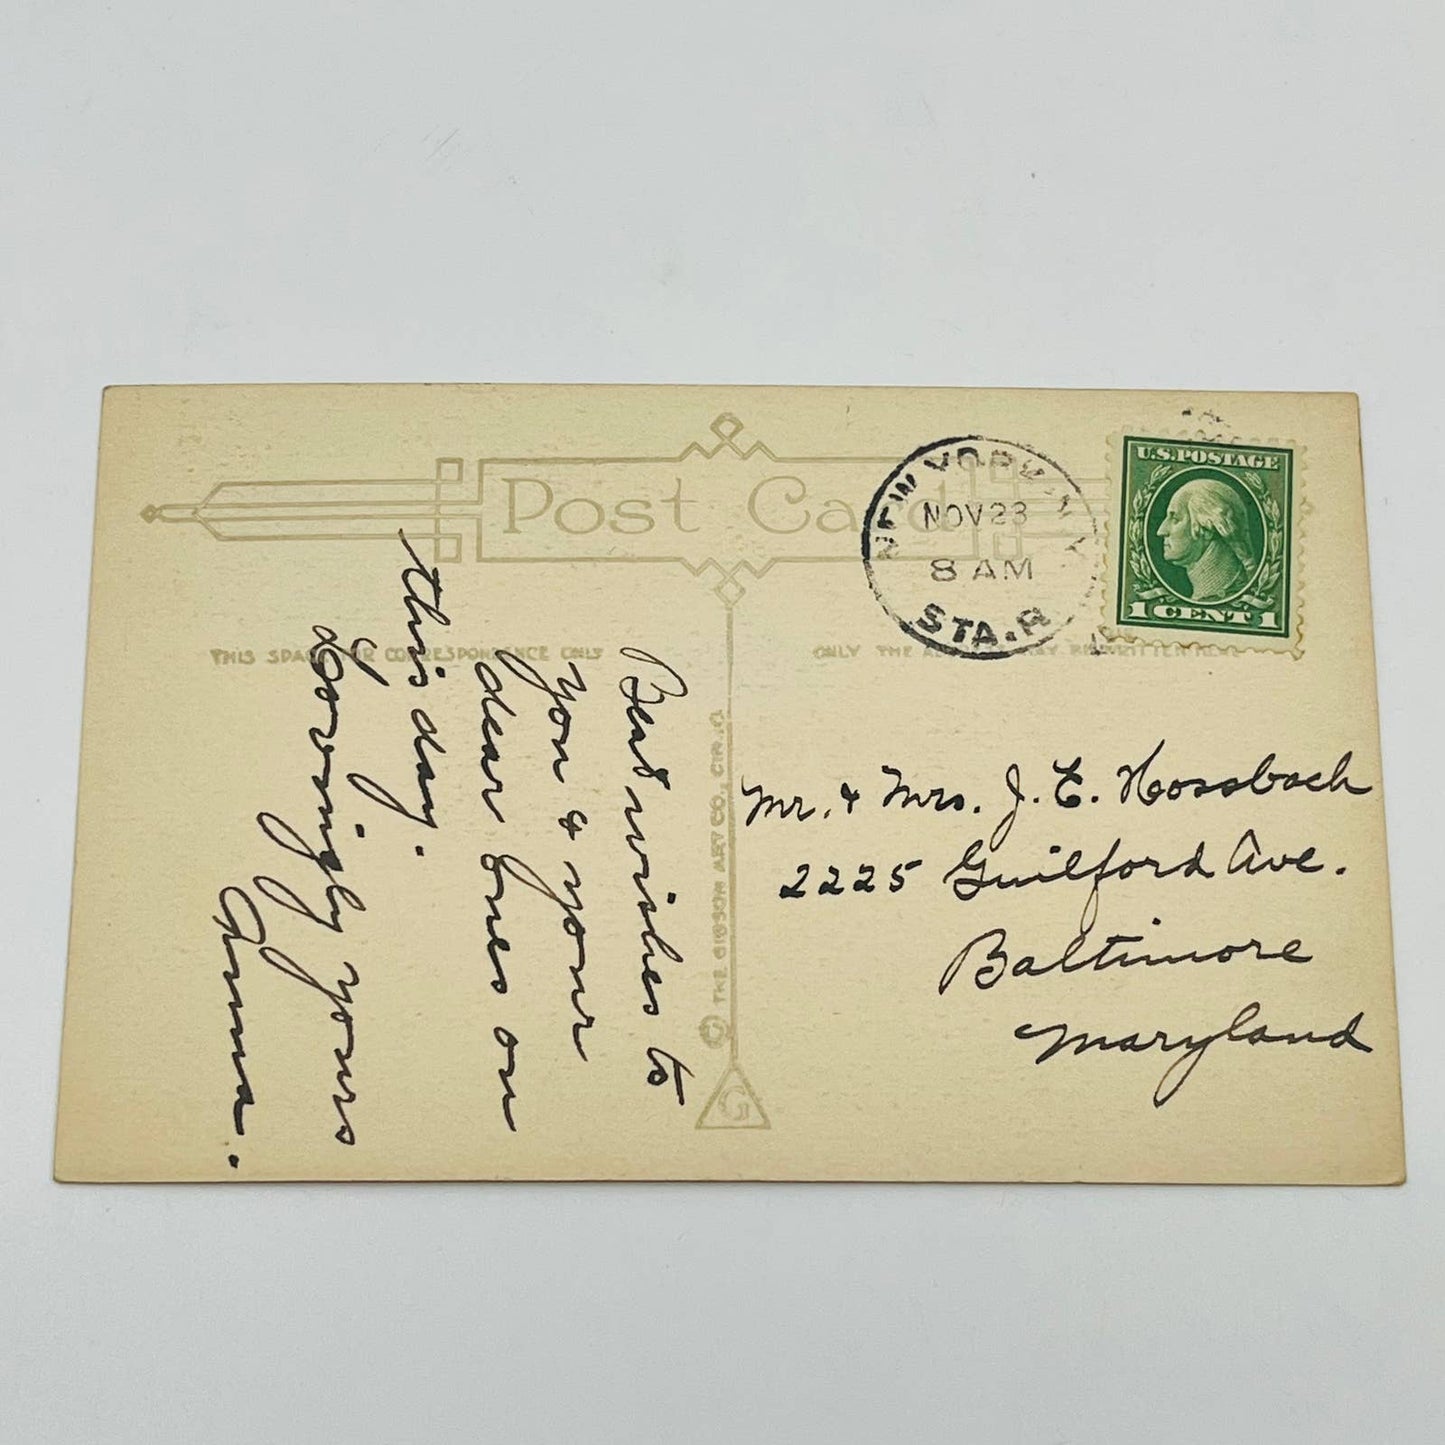 Post Card
THIS SPACE FOR CORRESPONDENCE ONLY
ONLY THE ADDRESS MAY BE WRITTEN HERE
NEW YORK, N.Y.
NOV 23
8 AM
STA. R
U.S. POSTAGE
1 CENT 1
Best wishes to
you & your
dear ones on
this day.
Lovingly yours
Anna.
© THE GIBSON ART CO., CIN. O.
G
Mr. & Mrs. J. E. Hossbach
2225 Guilford Ave.
Baltimore
Maryland